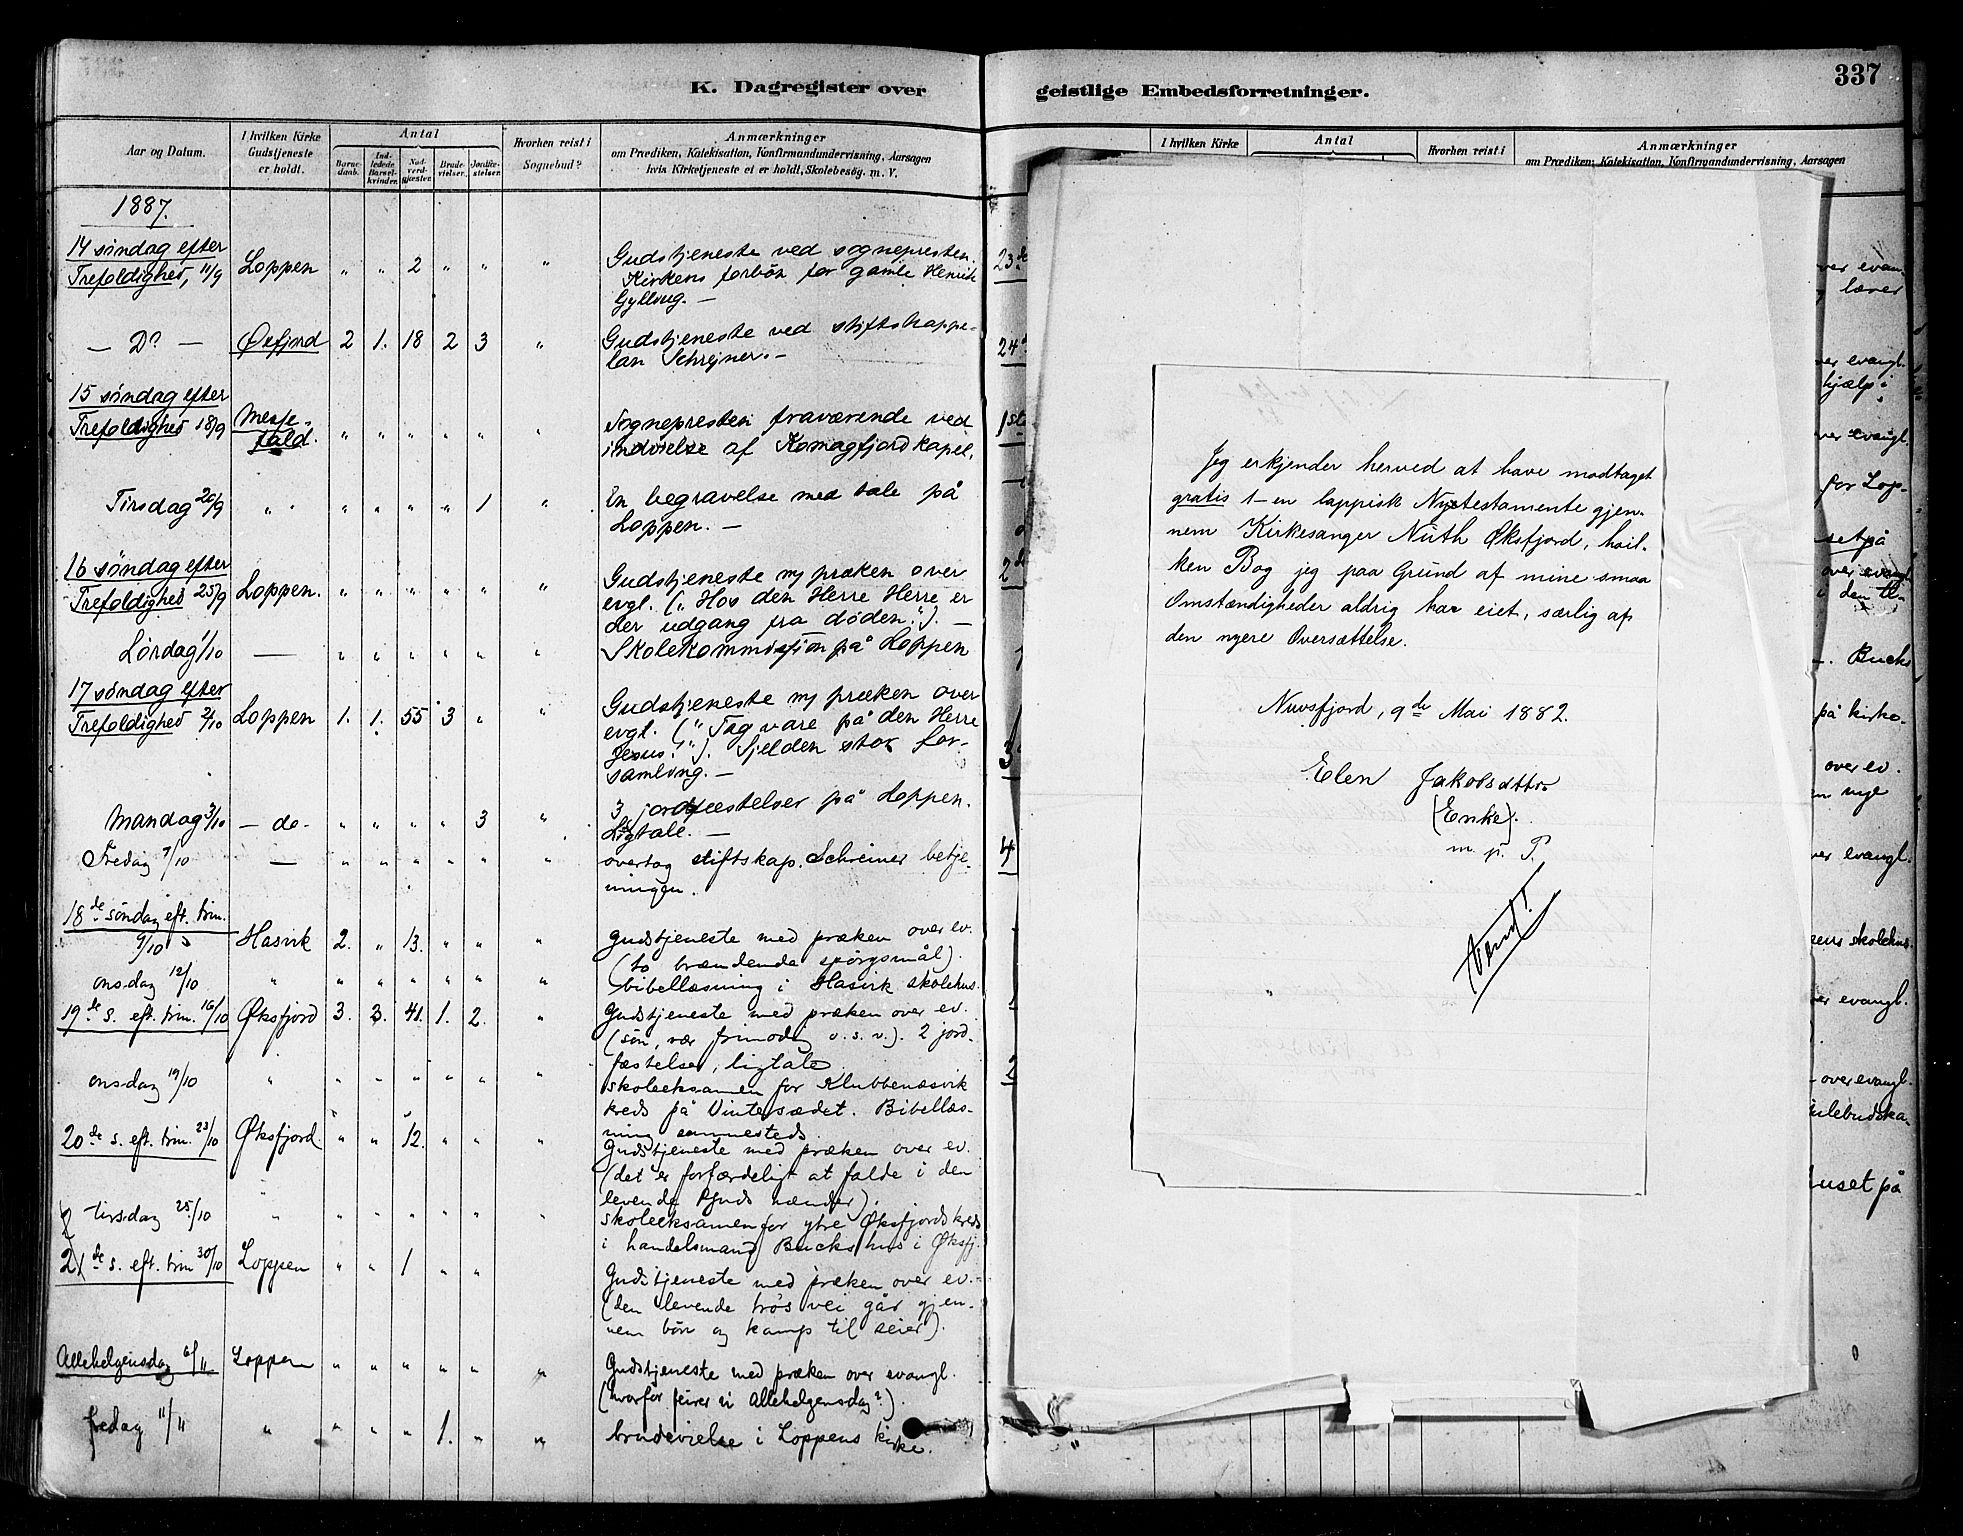 K. Dagregister over
geistlige Embedsforretninger.
337
Aar og Datum.
I hvilken Kirke Gudstjeneste er holdt.
Antal
Barnedaab.
Indledede Barselkvinder.
Nadverdgjæster.
Brudevielser.
Jordfæstelser.
Hvorhen reist i Sognebud?
Anmærkninger
om Prædiken, Katekisation, Konfirmandundervisning, Aarsagen
hvis Kirketjeneste ei er holdt, Skolebesøg. m. V.
1887.
14 søndag efter
Trefoldighed, 11/9 Loppen " " 2 " " " Gudstjeneste ved sognepresten.
Kirkens forbön for gamle Henrik
Gylling. —
— Do — Øxfjord 2 1. 18 2 3 " Gudstjeneste ved stiftskappe-
lan Schrejner. —
15 søndag efter
Trefoldighed 18/9 Messe- " " " " " " Sognepresten fraværende ved
fald. indvielse af Komagfjord kapel.
Tirsdag 20/9 " " " " " " 1 " En begravelse med tale på
Loppen. —
16 søndag efter
Trefoldighed 25/9 Loppen. " " " " " " Gudstjeneste m præken over
evgl. („Hos den Herre Herre er
der udgang fra døden.“). —
Lørdag 1/10 — " " " " " " Skolekommission på Loppen
17 søndag efter
Trefoldighed 2/10 Loppen 1. 1. 55 3 " " Gudstjeneste m præken over
evgl. („Tag vare på den Herre
Jesus!“). Sjelden stor for-
samling. —
Mandag 3/10 — do — " " " " 3 " 3 jordfæstelser på Loppen.
Ligtale. —
Fredag 7/10 — " " " " " " overtog stiftskap. Schreiner betje-
ningen.
18de søndag eft. trin.
9/10 Hasvik 2. " 13. " " " Gudstjeneste med præken over ev.
(to brændende spörgsmål).
onsdag 12/10 " " " " " " " bibellæsning i Hasvik skolehus.
19de s. eft. trin. 16/10 Øksfjord 3. 3. 41. 1. 2. " Gudstjeneste med præken over ev.
(sön, vær frimodig o. s. v.). 2 jord-
fæstelser, ligtale.
onsdag 19/10 " " " " " " " skoleeksamen for Klubbenæsvik
kreds på Vintersædet. Bibellæs-
ning sammesteds.
20de s. eft. trin. 23/10 Øksfjord. " " 12. " " " Gudstjeneste med præken over ev.
(det er forfærdeligt at falde i den
levende Guds hænder).
tirsdag 25/10 " " " " " " " skoleeksamen for ytre Øksfjords kreds
i handelsmand Bucks hus i Øksfj.
21de s. eft. trin 30/10 Loppen " " 1 " " Gudstjeneste med præken over ev.
(den levende trös vei går gjen-
nem bön og kamp til seier).
Allehelgensdag 6/11 Loppen " " " " " " Gudstjeneste med præken over evangl.
(hvorfor feirer vi Allehelgensdag?).
fredag 11/11 " " " " 1. " " brudevielse i Loppens kirke.
I hvilken Kirke
Antal
Hvorhen reist i
Anmærkninger
om Prædiken, Katekisation, Konfirmandundervisning, Aarsagen
23de
24d
1ste
2de
3
4
2
Jeg erkjender herved at have modtaget
gratis 1 – en lappisk Nytestamente gjen-
nem Kirkesanger Nuth Øksfjord, hvil-
ken Bog jeg paa Grund af mine smaa
Omstændigheder aldrig har eiet, særlig af
den nyere Oversættelse.
Nuvsfjord, 9de Mai 1882.
Elen Jakobsdttr.
(Enke).
m. p. P.
over evan-
læner
over evangl.
hjælp i
over evangl.
for Lop-
set på
over evangl
i den
. Bucks
på kirke-
over ev.
en nye
over evangl.
ens skolehus.
over evangl.
over evangl.
ulebudska-
uset på